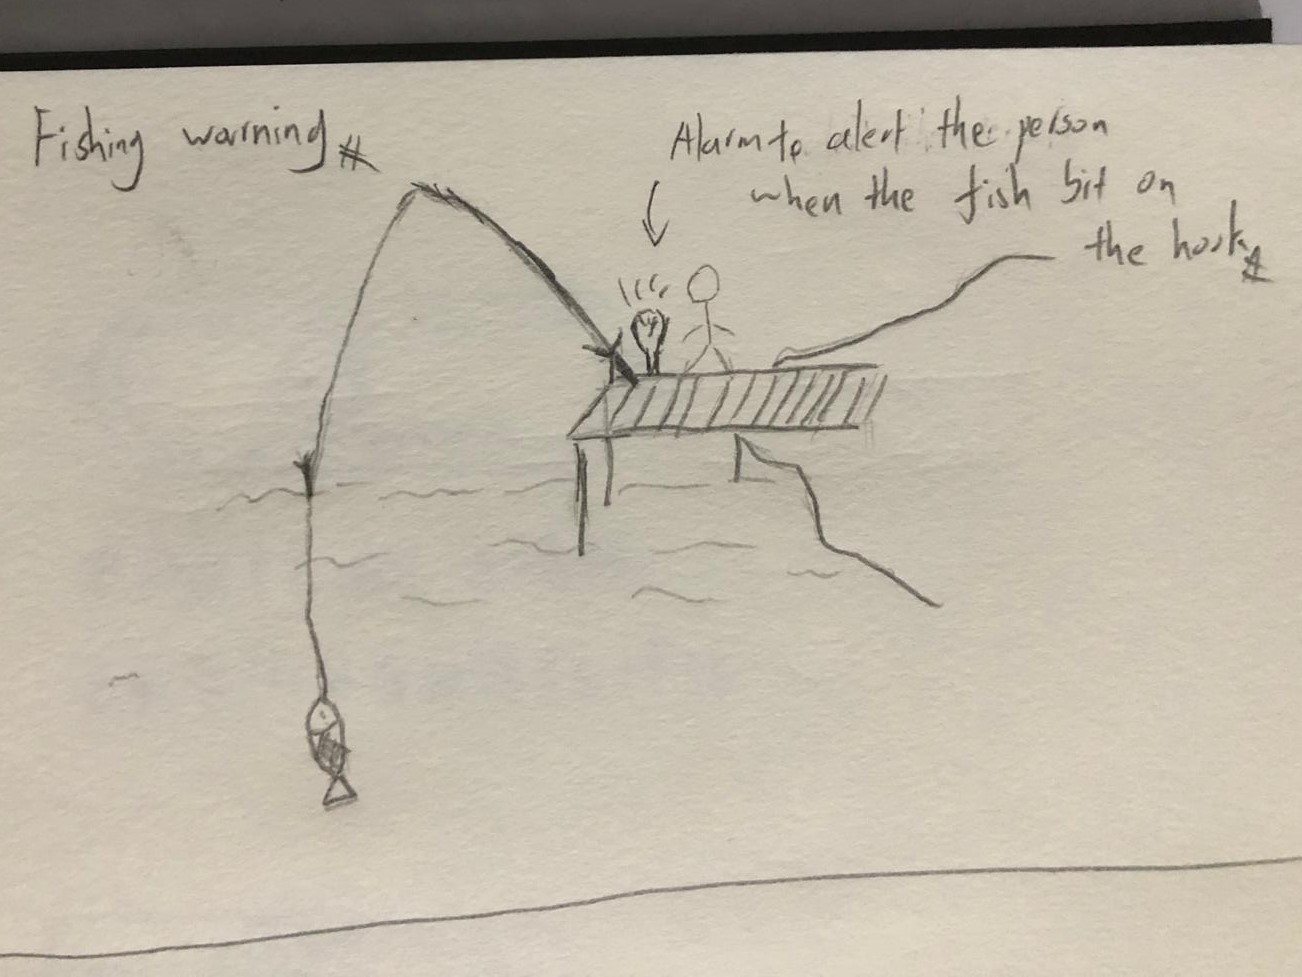 Fishing warning
Alarm to alert the person
when the fish bit on
the hook